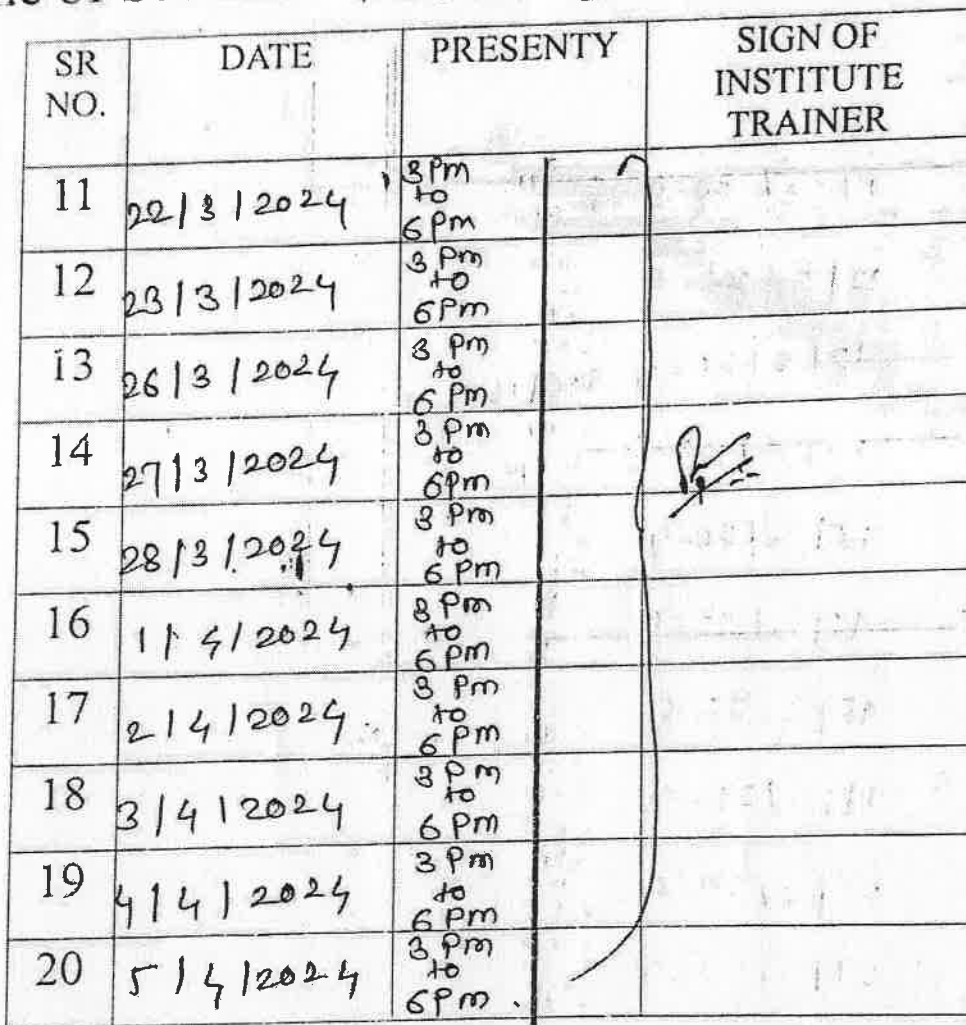 SR NO. DATE PRESENTY SIGN OF INSTITUTE TRAINER
11 22/3/2024 3 Pm to 6 Pm
12 23/3/2024 3 Pm to 6 Pm
13 26/3/2024 3 Pm to 6 Pm
14 27/3/2024 3 Pm to 6 Pm
15 28/3/2024 3 Pm to 6 Pm
16 1/4/2024 3 Pm to 6 Pm
17 2/4/2024 3 Pm to 6 Pm
18 3/4/2024 3 Pm to 6 Pm
19 4/4/2024 3 Pm to 6 Pm
20 5/4/2024 3 Pm to 6 Pm